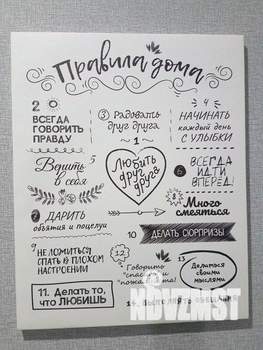 Правила дома
2
ВСЕГДА
ГОВОРИТЬ
ПРАВДУ
3 Радовать
друг друга
4
НАЧИНАТЬ
каждый день
С УЛЫБКИ
1
Любить
друг
друга
Верить 5
в себя
6 ВСЕГДА
ИДТИ
ВПЕРЁД!
7 ДАРИТЬ
объятия и поцелуи
8 Много
смеяться
9 НЕ ЛОЖИТЬСЯ
СПАТЬ В ПЛОХОМ
НАСТРОЕНИИ
10 ДЕЛАТЬ СЮРПРИЗЫ
11. Делать то,
что ЛЮБИШЬ
12
Говорить
"спасибо" и
"пожалуйста"
13
Делиться
своими
мыслями
ВЫПОЛНЯТЬ
MOVZMST